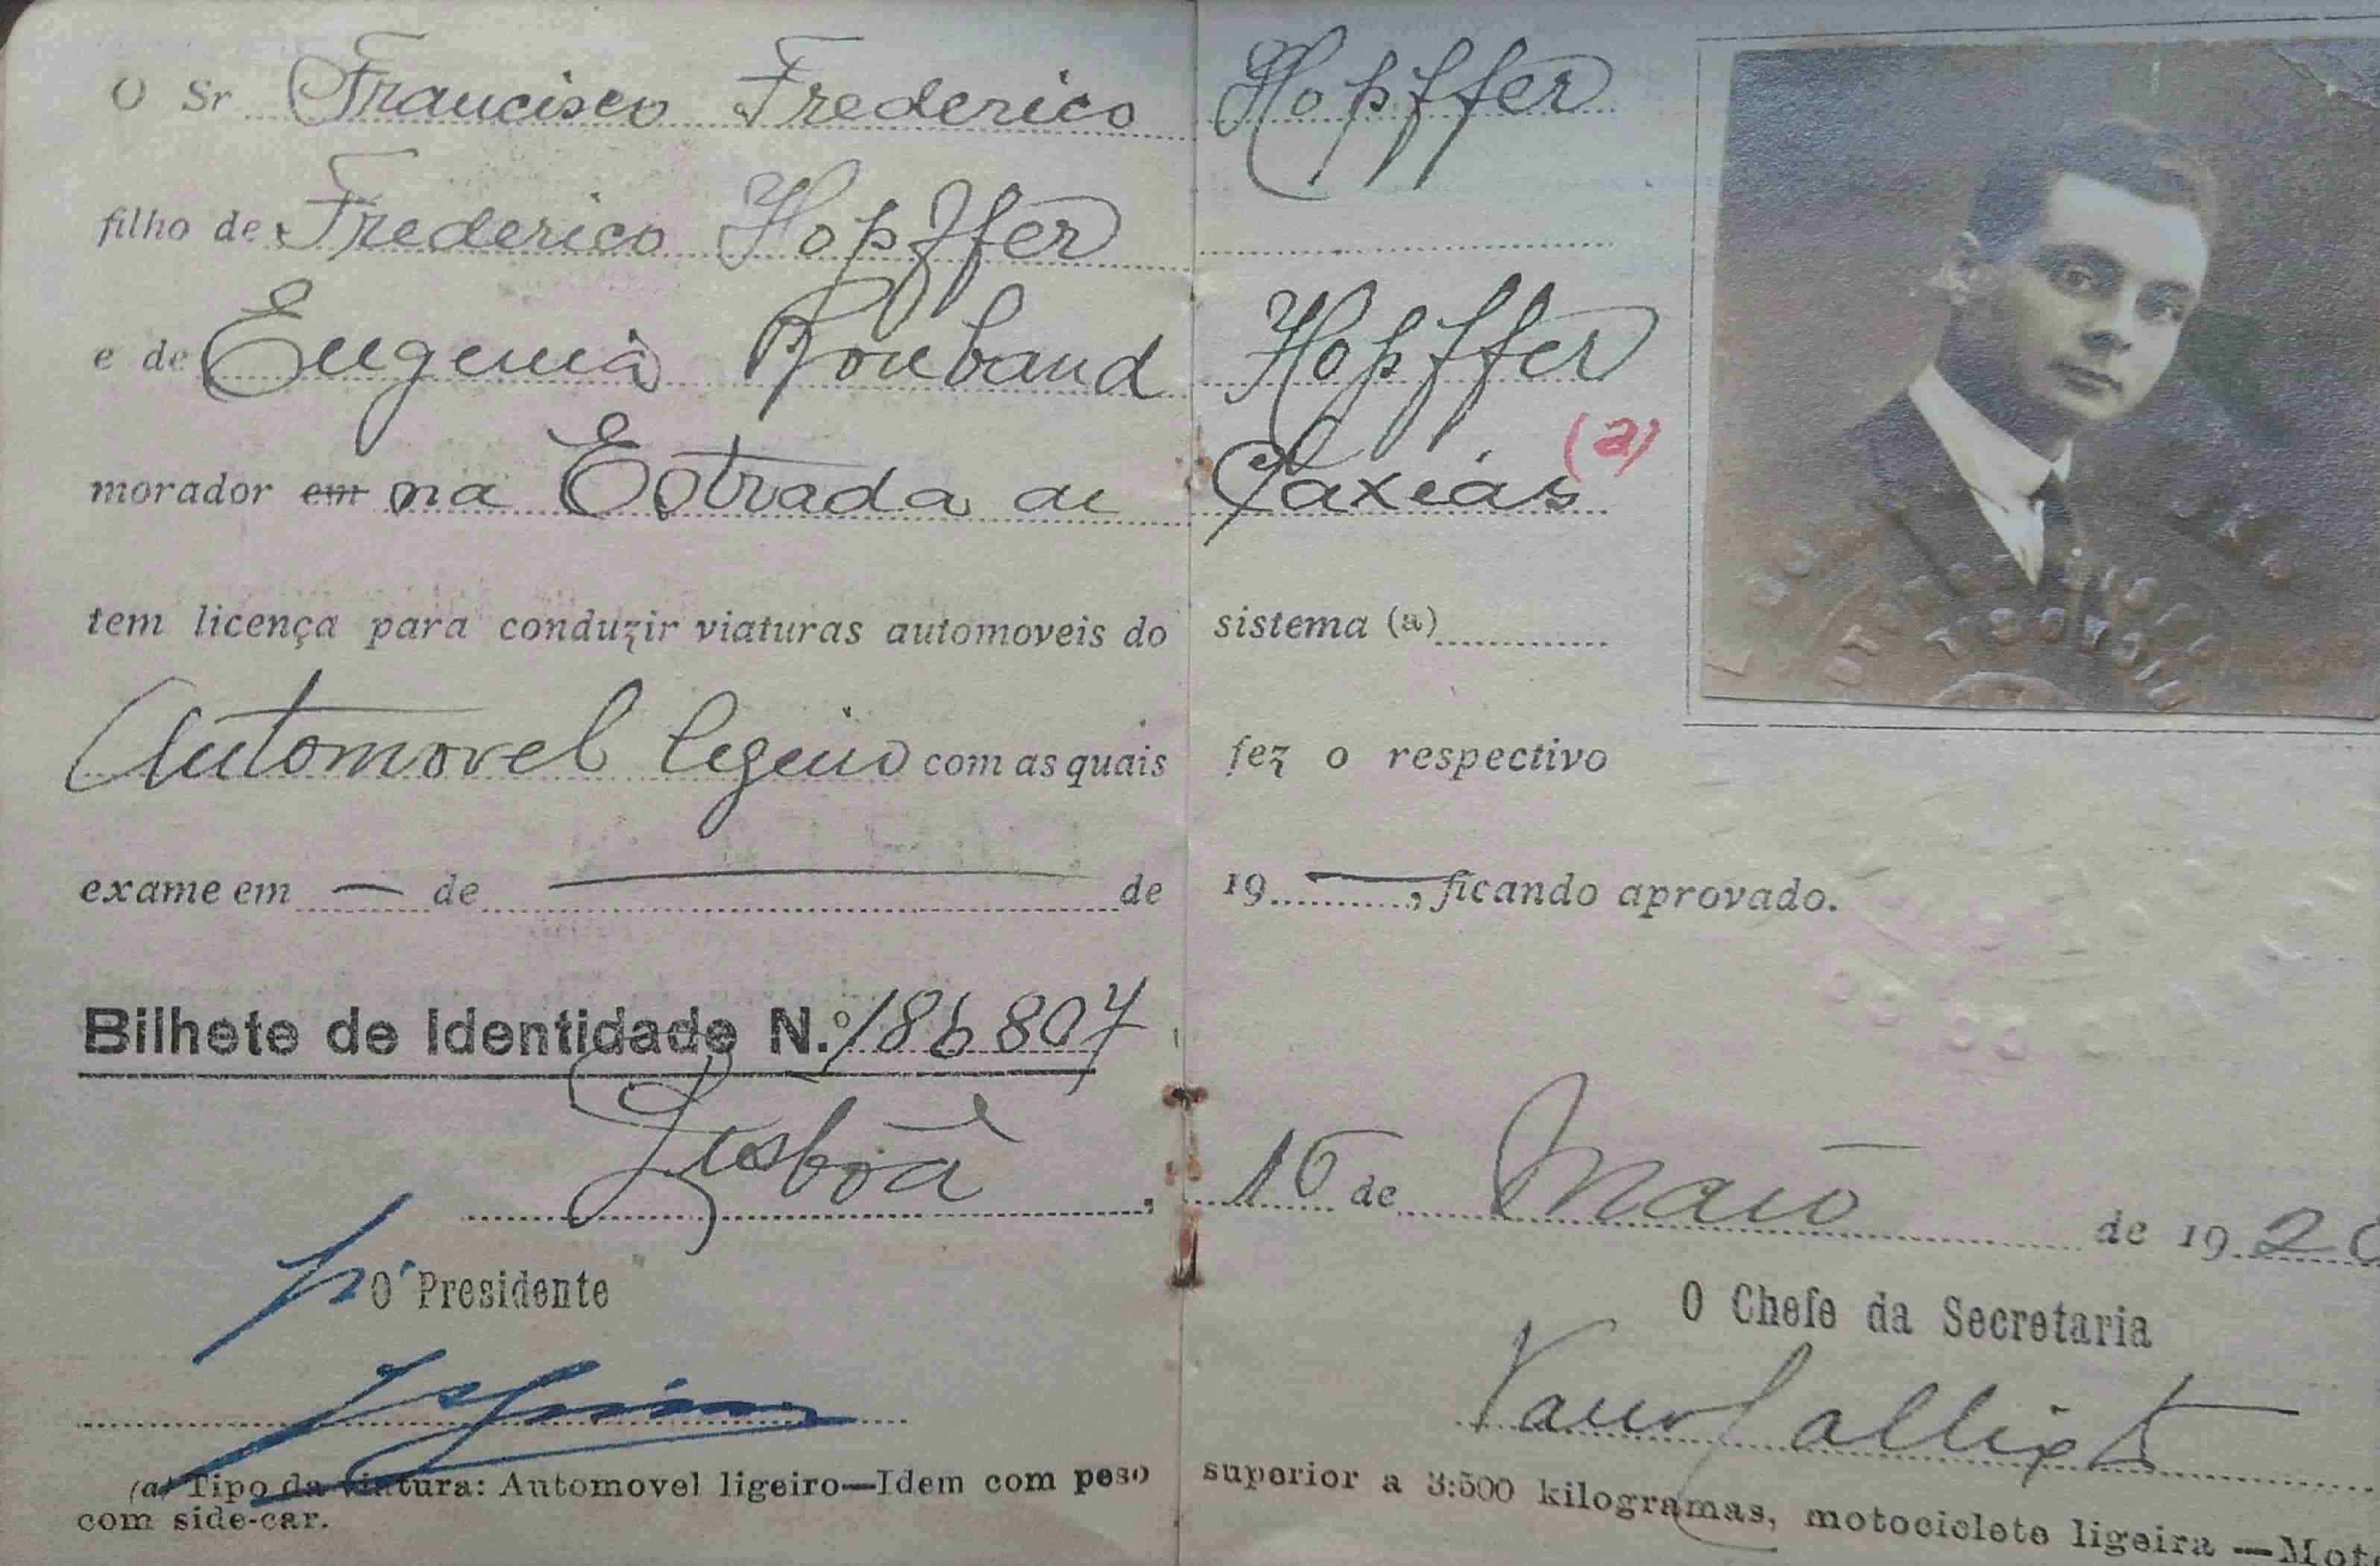 O Sr. Francisco Frederico Hopffer
filho de Frederico Hopffer
e de Eugenia Roubaud Hopffer
morador em na Estrada de Caxias (a)
tem licença para conduzir viaturas automoveis do sistema (a)
Automovel ligeiro com as quais fez o respectivo
exame em — de — de 19 —, ficando aprovado.
Bilhete de Identidade N.º 186807
Lisboa, 16 de Maio de 192
p' O Presidente
O Chefe da Secretaria
(a) Tipo da viatura: Automovel ligeiro—Idem com peso superior a 3:500 kilogramas, motociclete ligeira—Mot
com side-car.